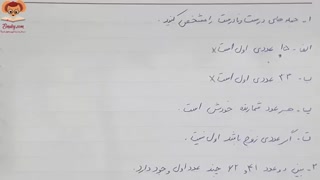 ۱- جمله های درست و نادرست را مشخص کنید.
الف. ۱۵ عددی اول است x
ب. ۲۳ عددی اول است x
پ. هر عدد شمارنده خودش است.
ت. اگر عددی زوج باشد اول نیست.
۲- بین دو عدد ۴۱ و ۶۲ چند عدد اول وجود دارد.